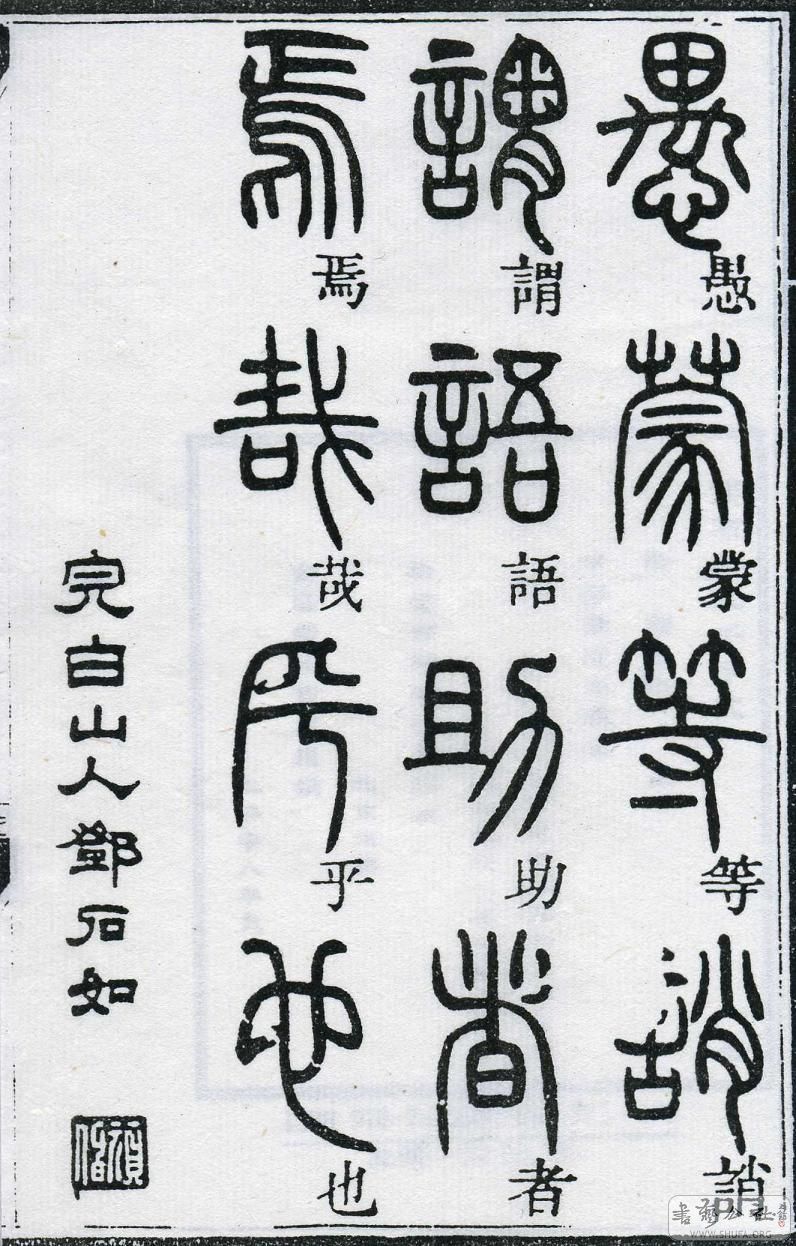 愚蒙等誚
謂語助者
焉哉乎也
完白山人鄧石如
書法公社
WWW.SHUFA.ORG